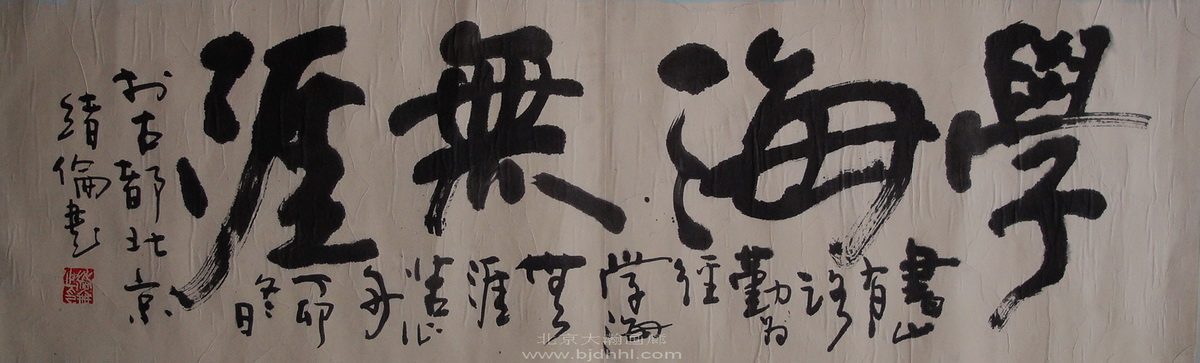 學海無涯
書山
有
路
勤为
徑
学海
無
涯
苦作
舟
丁卯
冬日
於古都北京
倫書
北京大翰画廊
www.bjdhhl.com